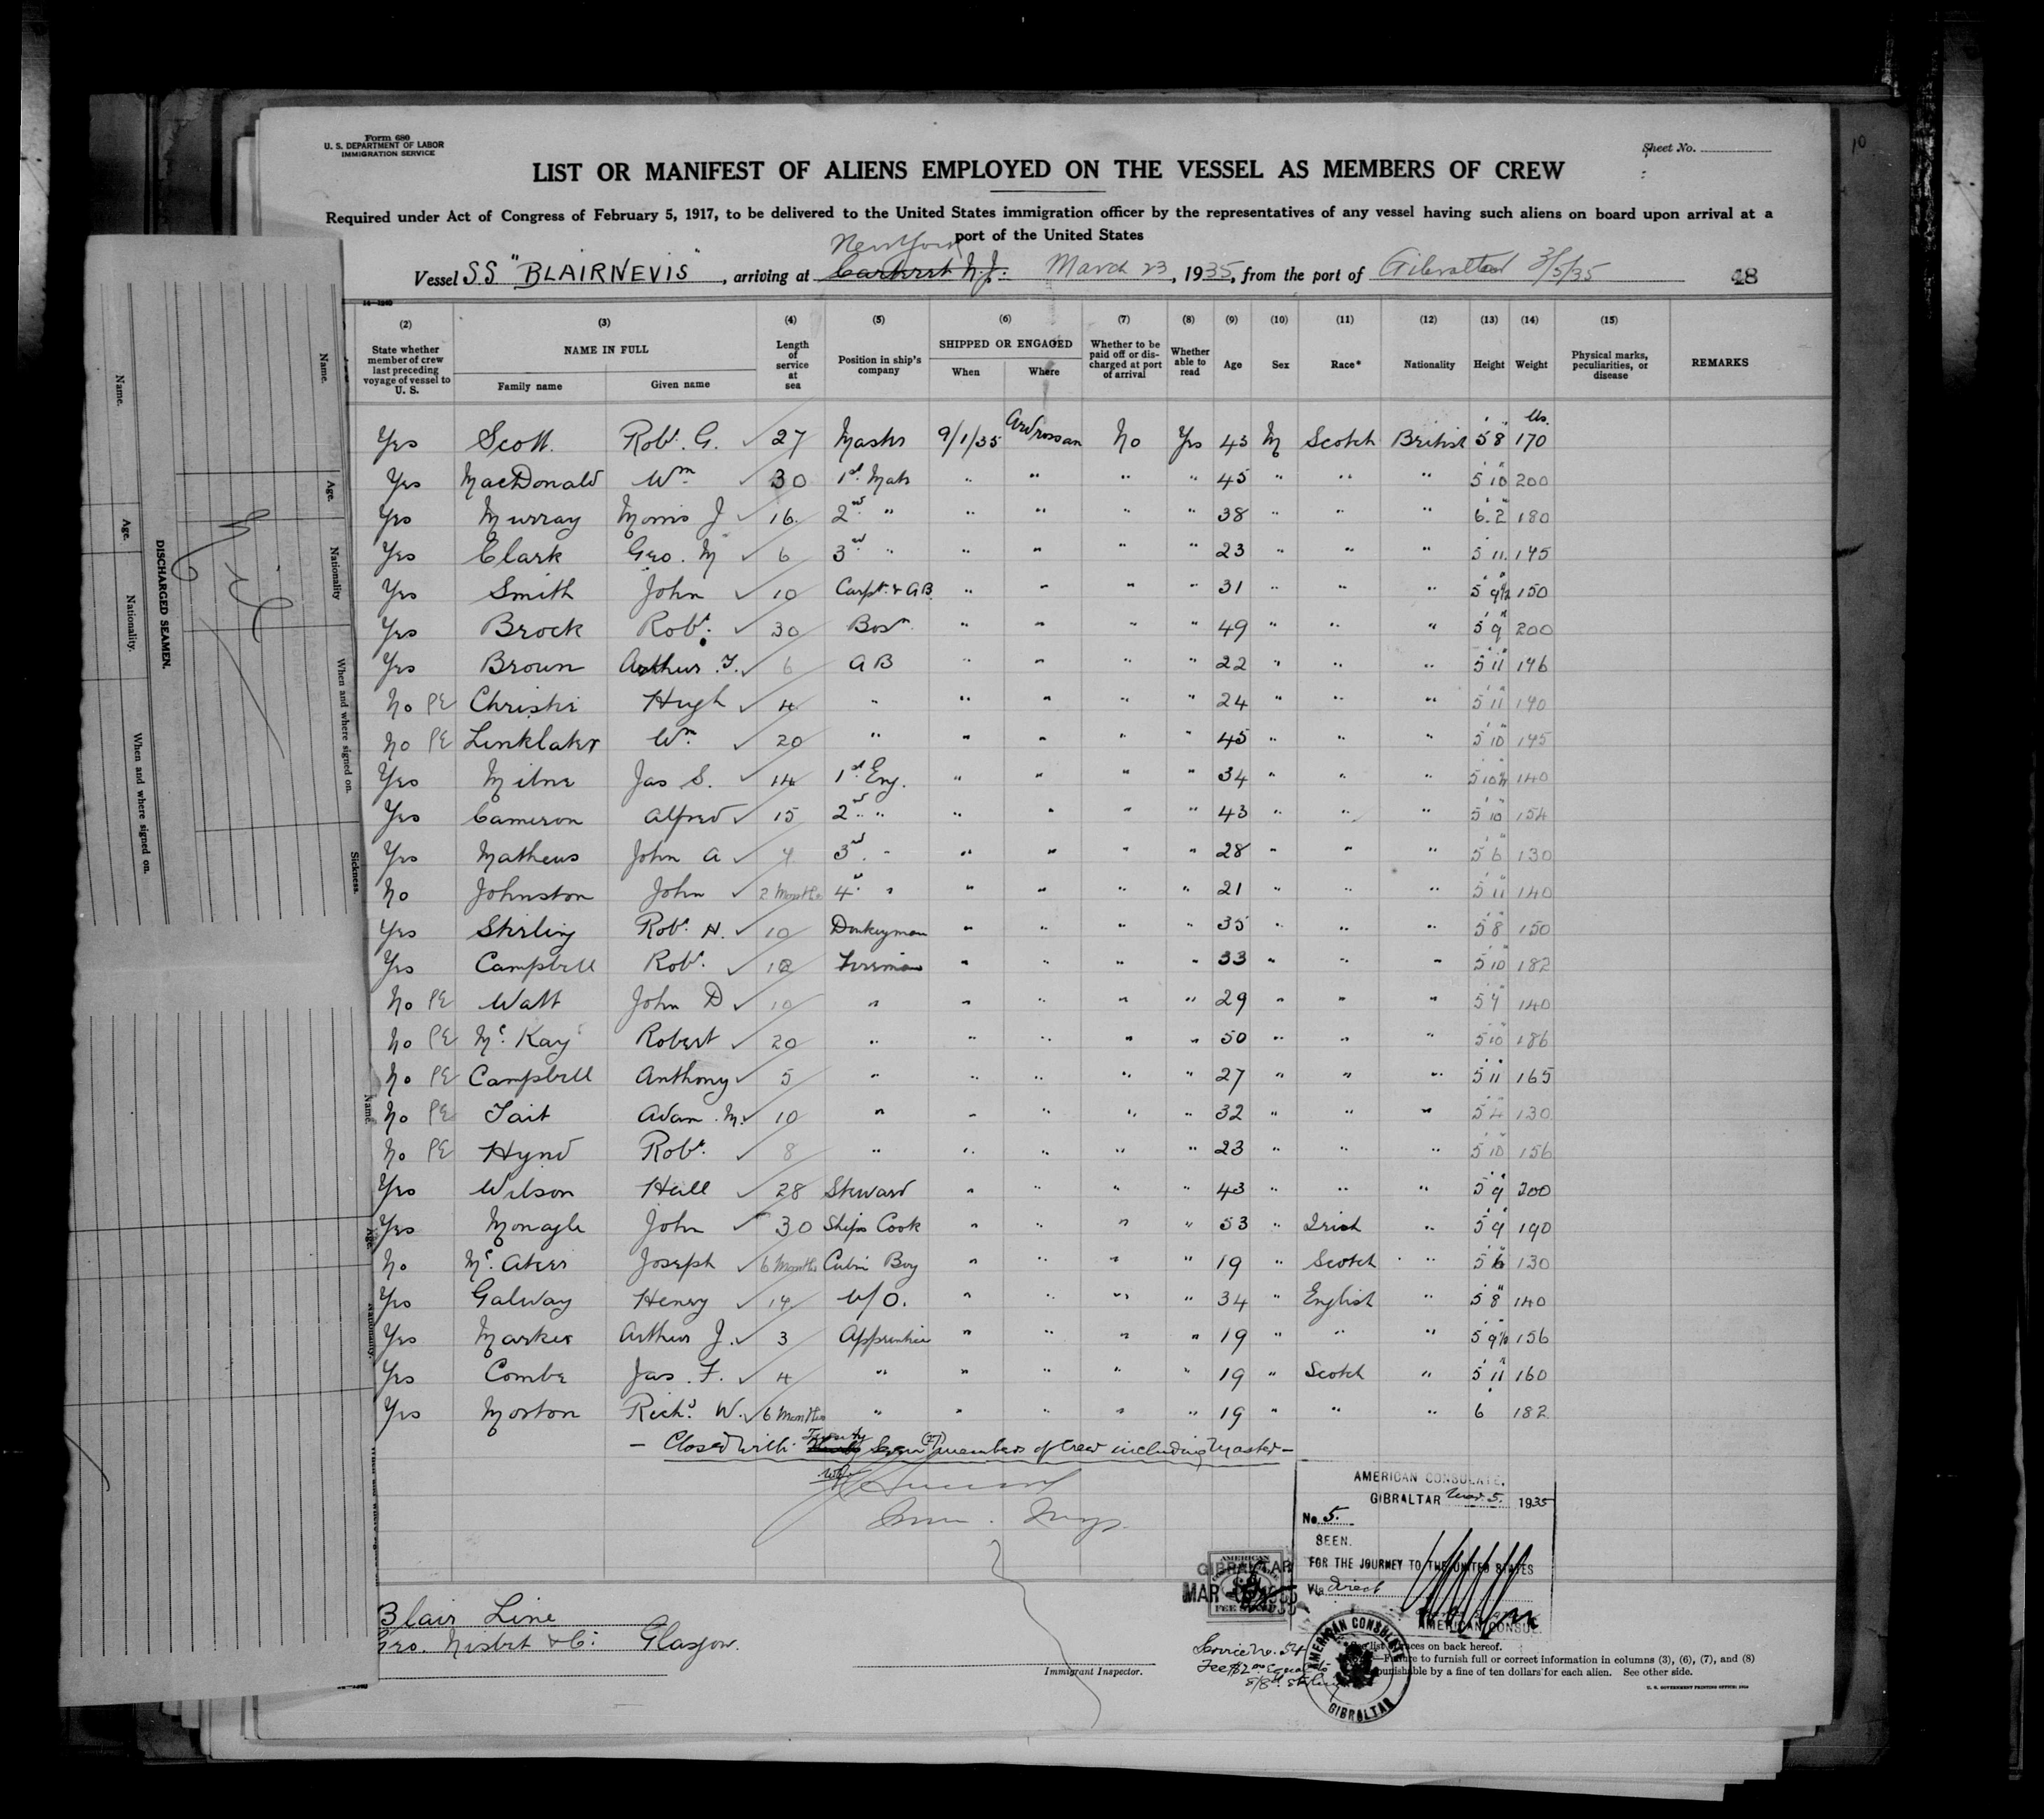 Form 680
U. S. DEPARTMENT OF LABOR
IMMIGRATION SERVICE
Sheet No.
10
LIST OR MANIFEST OF ALIENS EMPLOYED ON THE VESSEL AS MEMBERS OF CREW
Required under Act of Congress of February 5, 1917, to be delivered to the United States immigration officer by the representatives of any vessel having such aliens on board upon arrival at a
port of the United States
New York
Vessel SS "BLAIRNEVIS", arriving at Carteret N.J. March 23, 1935, from the port of Gibraltar 3/5/35 48
(2) (3) (4) (5) (6) (7) (8) (9) (10) (11) (12) (13) (14) (15)
State whether member of crew last preceding voyage of vessel to U. S. NAME IN FULL Family name Given name Length of service at sea Position in ship's company SHIPPED OR ENGAGED When Where Whether to be paid off or discharged at port of arrival Whether able to read Age Sex Race* Nationality Height Weight Physical marks, peculiarities, or disease REMARKS
Yes Scott Robt. G. ✓ 27 Master 9/1/35 Ardrossan No Yes 43 M Scotch British 5' 8" 170 lbs.
Yes MacDonald Wm ✓ 30 1st Mate " " " " 45 " " " 5' 10" 200
Yes Murray Morris J ✓ 16 2nd " " " " " 38 " " " 6' 2" 180
Yes Clark Geo. M ✓ 6 3rd " " " " " 23 " " " 5' 11" 145
Yes Smith John ✓ 10 Carptr. & AB. " " " " 31 " " " 5' 9½" 150
Yes Brock Robt. ✓ 30 Bosn. " " " " 49 " " " 5' 9" 200
Yes Brown Arthur T. ✓ 6 AB " " " " 22 " " " 5' 11" 146
No PE Christie Hugh ✓ 4 " " " " " 24 " " " 5' 11" 140
No PE Linklater Wm. ✓ 20 " " " " " 45 " " " 5' 10" 145
Yes Milne Jas S. ✓ 14 1st Eng. " " " " 34 " " " 5' 10½" 140
Yes Cameron Alfred ✓ 15 2nd " " " " " 43 " " " 5' 10" 154
Yes Mathews John A ✓ 4 3rd " " " " " 28 " " " 5' 6" 130
No Johnston John ✓ 2 Months 4th " " " " " 21 " " " 5' 11" 140
Yes Stirling Robt. H. ✓ 10 Donkeyman " " " " 35 " " " 5' 8" 150
Yes Campbell Robt. ✓ 10 Fireman " " " " 33 " " " 5' 10" 182
No PE Watt John D ✓ 10 " " " " " 29 " " " 5' 7" 140
No PE Mc Kay Robert ✓ 20 " " " " " 50 " " " 5' 10" 186
No PE Campbell Anthony ✓ 5 " " " " " 27 " " " 5' 11" 165
No PE Tait Adam M. ✓ 10 " " " " " 32 " " " 5' 4" 130
No PE Hynd Robt. ✓ 8 " " " " " 23 " " " 5' 10" 156
Yes Wilson Hall ✓ 28 Steward " " " " 43 " " " 5' 9" 200
Yes Monagle John ✓ 30 Ships Cook " " " " 53 " Irish " 5' 9" 190
No Mc. Ateer Joseph ✓ 6 Months Cabin Boy " " " " 19 " Scotch " 5' 6" 130
Yes Galway Henry ✓ 14 W/O. " " " " 34 " English " 5' 8" 140
Yes Marker Arthur J. ✓ 3 Apprentice " " " " 19 " " " 5' 9½" 156
Yes Combe Jas. F. ✓ 4 " " " " " 19 " Scotch " 5' 11" 160
Yes Morton Richd. W. ✓ 6 Months " " " " " 19 " " " 6' 182
— Closed with Twenty Seven (27) members of Crew including Master —
AMERICAN CONSULATE.
GIBRALTAR Mar. 5. 1935
No. 5.
SEEN.
FOR THE JOURNEY TO THE UNITED STATES
Via direct
AMERICAN CONSUL
AMERICAN
GIBRALTAR
MAR
FEE STAMP
Blair Line
Geo. Nisbet & Co. Glasgow.
Immigrant Inspector.
Service No. 54
Fee $2 00 equal to
AMERICAN CONSULATE
GIBRALTAR
list of races on back hereof.
to furnish full or correct information in columns (3), (6), (7), and (8)
punishable by a fine of ten dollars for each alien. See other side.
U. S. GOVERNMENT PRINTING OFFICE
DISCHARGED SEAMEN.
Name. Age. Nationality. When and where signed on.
Name. Age. Nationality When and where signed on. Sickness.
Nil
Name Age. Nationality.